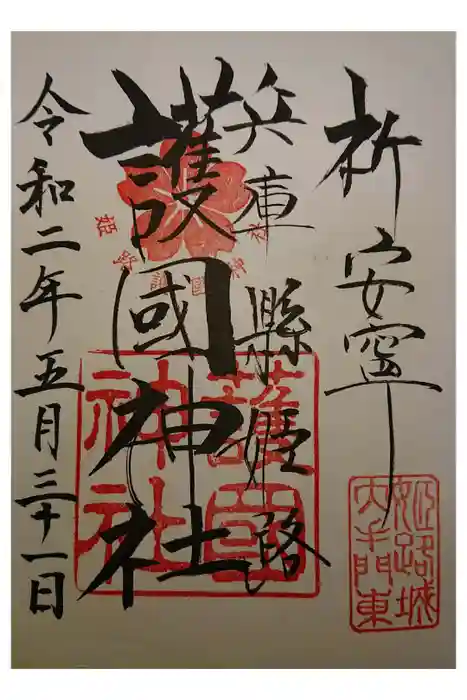 祈安寧
兵庫縣姫路
護國神社
令和二年五月三十一日
護國神社
姫路城
大手門東